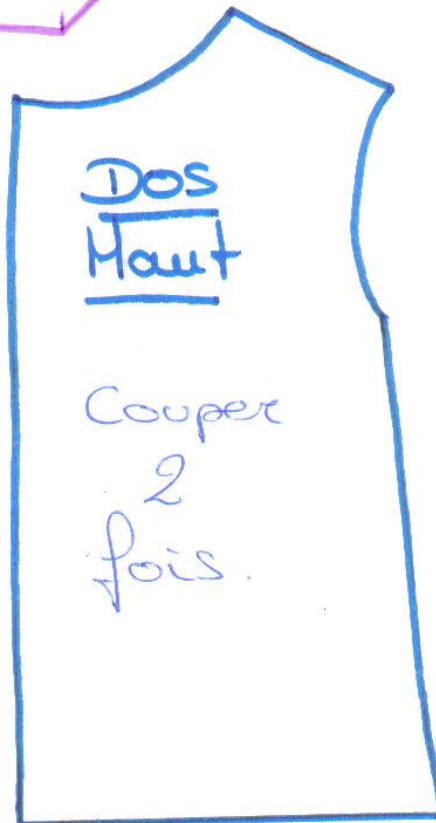 Dos
Haut
Couper
2
fois.